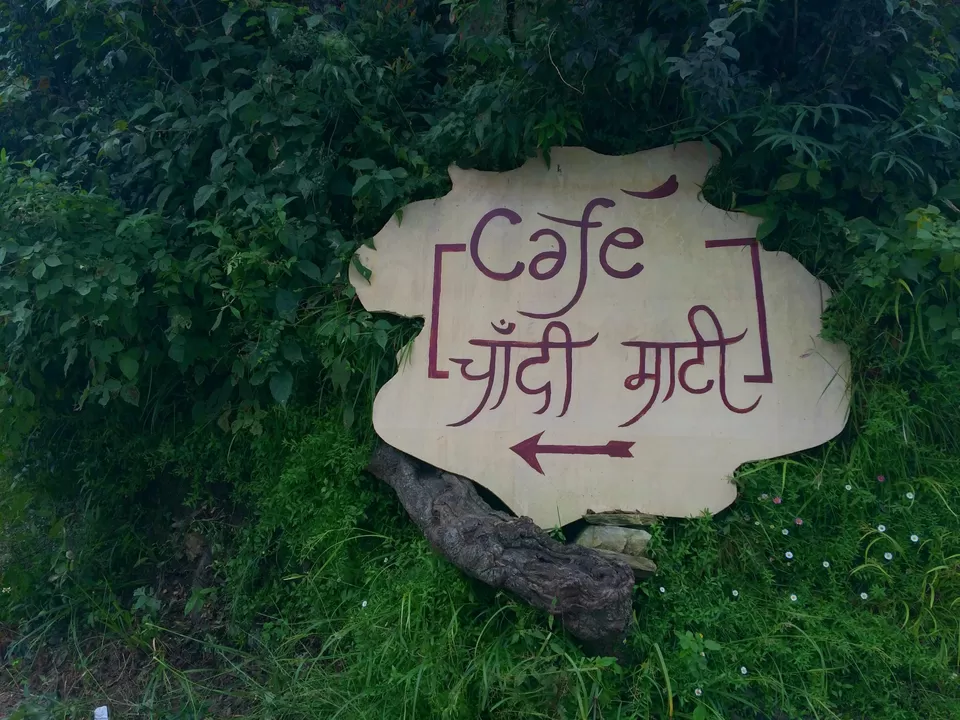 Café
चाँदी माटी